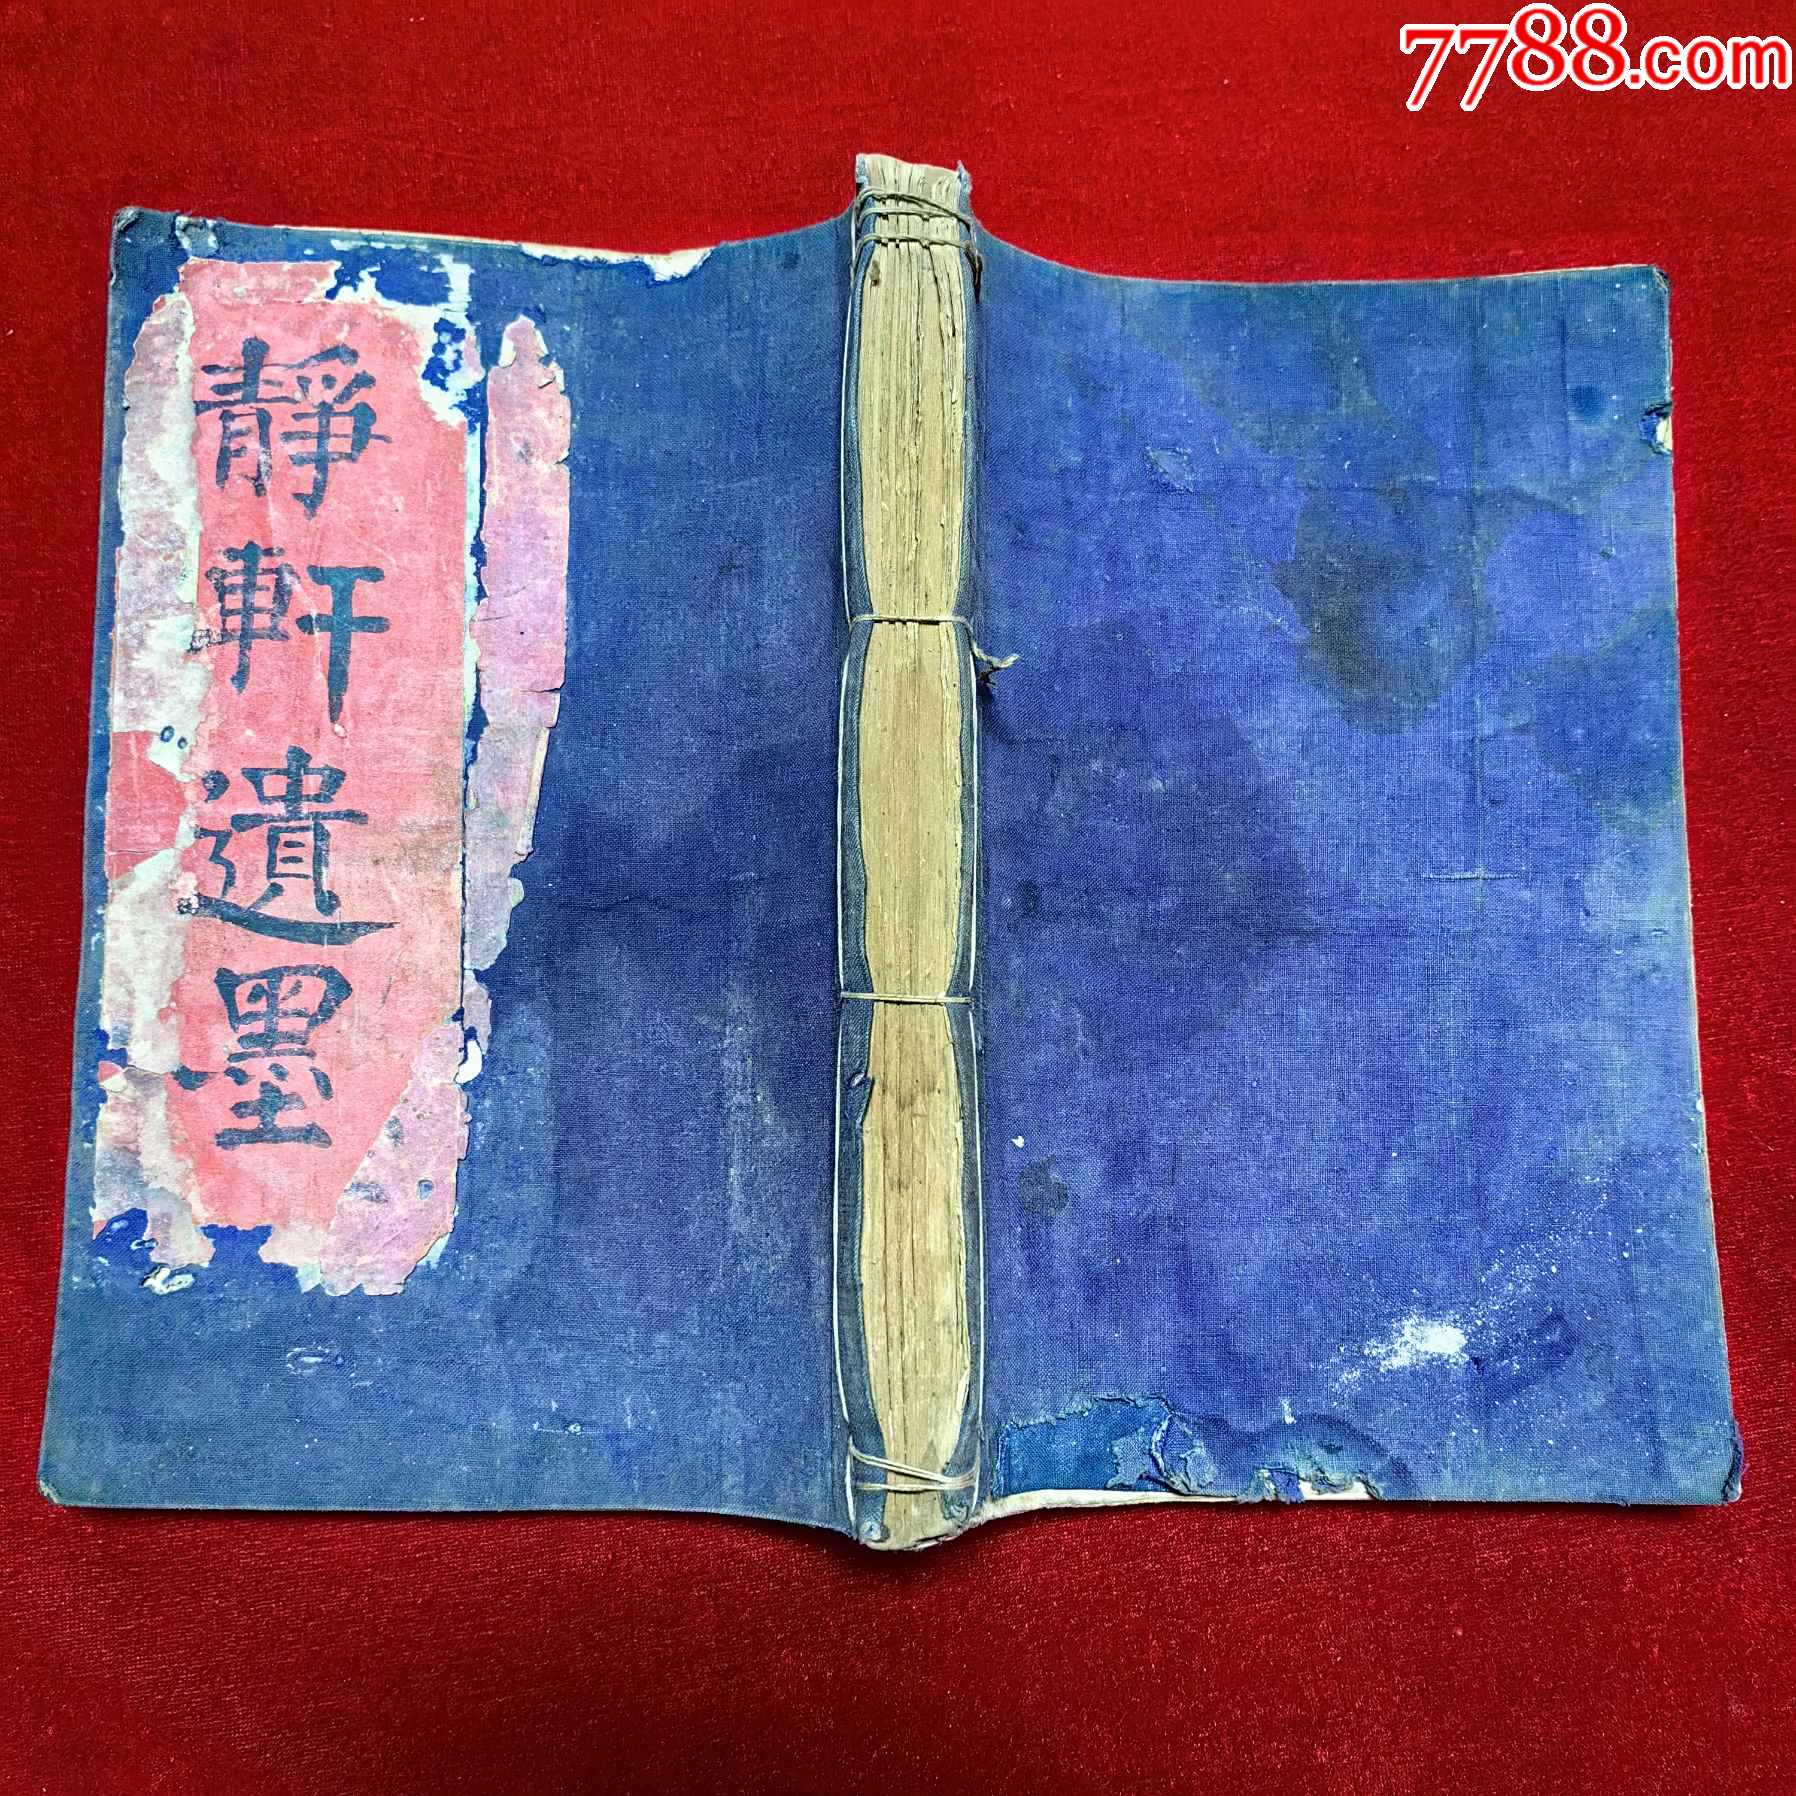 7788.com
靜軒遺墨